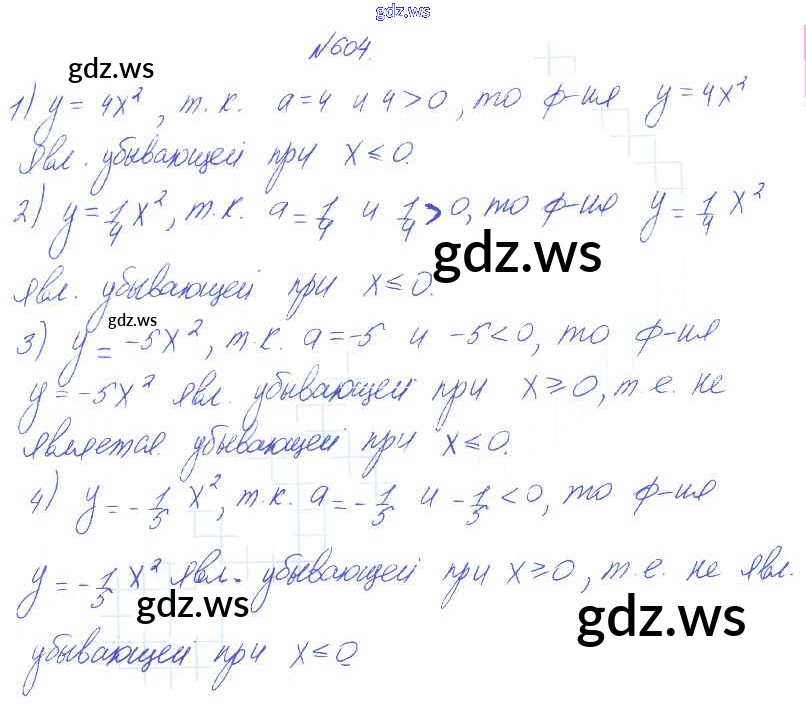 gdz.ws
№604.
gdz.ws
1) y = 4x², т.к. a=4 и 4>0, то ф-ия y = 4x²
явл. убывающей при x ≤ 0.
2) y = 1/4 x², т.к. a = 1/4 и 1/4 > 0, то ф-ия y = 1/4 x²
gdz.ws
явл. убывающей при x ≤ 0.
gdz.ws
3) y = -5x², т.к. a = -5 и -5<0, то ф-ия
y = -5x² явл. убывающей при x ≥ 0, т.е. не
является убывающей при x ≤ 0.
4) y = -1/5 x², т.к. a = -1/5 и -1/5 < 0, то ф-ия
y = -1/5 x² явл. убывающей при x ≥ 0, т.е. не явл.
gdz.ws
gdz.ws
убывающей при x ≤ 0